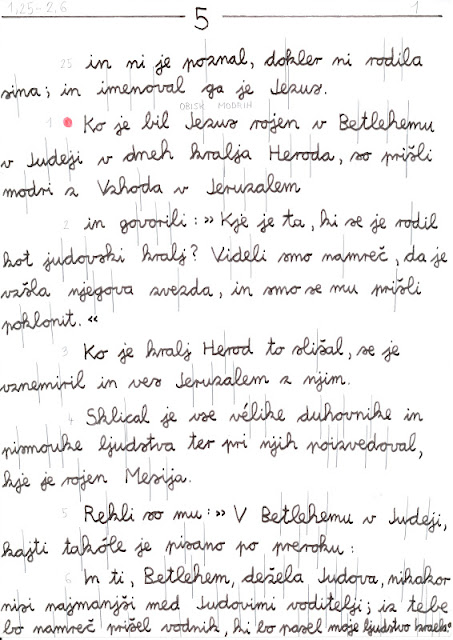 1,25-2,6 5 1
25 in ni je poznal, dokler ni rodila
sina; in imenoval ga je Jezus.
OBISK MODRIH
1 Ko je bil Jezus rojen v Betlehemu
v Judeji v dneh kralja Heroda, so prišli
modri z Vzhoda v Jeruzalem
2 in govorili: »Kje je ta, ki se je rodil
kot judovski kralj? Videli smo namreč, da je
vzšla njegova zvezda, in smo se mu prišli
poklonit.«
3 Ko je kralj Herod to slišal, se je
vznemiril in ves Jeruzalem z njim.
4 Sklical je vse vélike duhovnike in
pismouke ljudstva ter pri njih poizvedoval,
kje je rojen Mesija.
5 Rekli so mu: »V Betlehemu v Judeji,
kajti takóle je pisano po preroku:
6 In ti, Betlehem, dežela Judova, nikakor
nisi najmanjši med Judovimi voditelji; iz tebe
bo namreč prišel vodnik, ki bo pasel moje ljudstvo Izraela.«